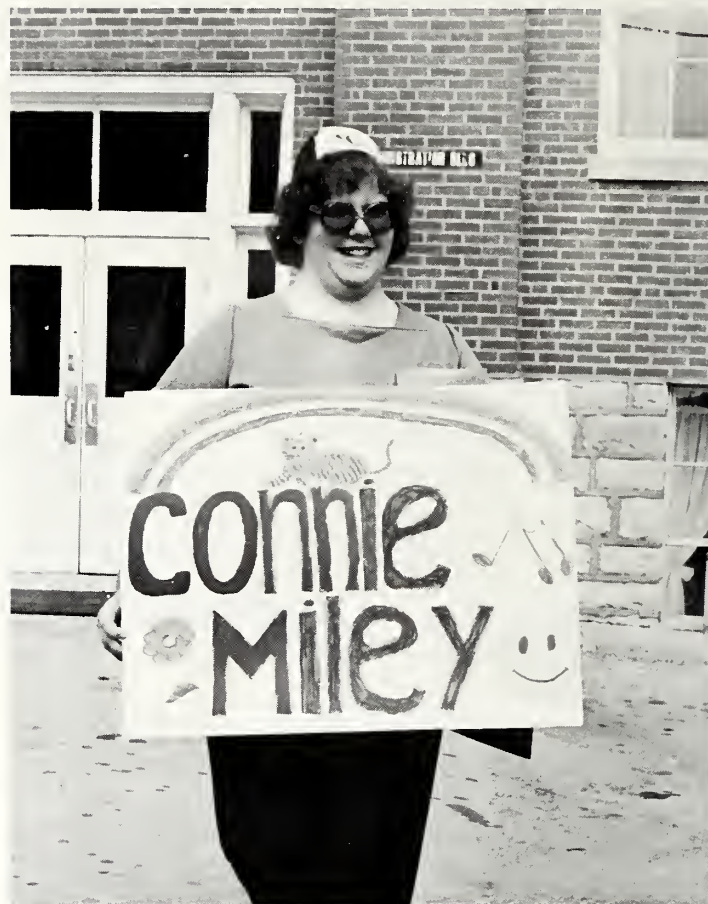 Connie
Miley